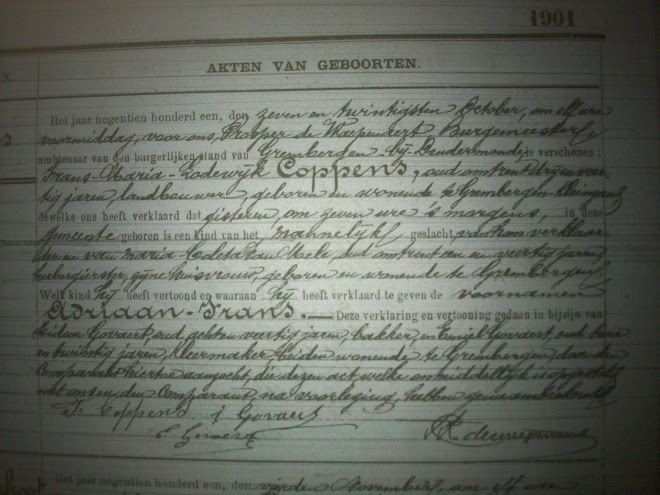 1901
AKTEN VAN GEBOORTEN.
Het jaar negentien honderd een, den zeven en twintigsten October, om elf ure
voormiddag, voor ons, Prosper de Burgemeester,
ambtenaar van den burgerlijken stand van Grembergen bij Dendermonde, is verschenen:
Frans-Maria-Lodewijk Coppens, oud omtrent dry en veer-
tig jaren, landbouwer, geboren en wonende te Grembergen
dewelke ons heeft verklaard dat gisteren, om zeven ure 's morgens, in deze
gemeente geboren is een kind van het mannelijk geslacht, van hem verklaar-
der en van Maria van oud omtrent een en veertig jaren,
herbergierster, zyne huisvrouw, geboren en wonende te Grembergen
Welk kind hij heeft vertoond en waaraan hij heeft verklaard te geven de voornamen
Adriaan-Frans. Deze verklaring en vertooning gedaan in bijzijn van
Govaert, oud acht en veertig jaren, bakker, en Emiel Govaert, oud twee
en twintig jaren, kleermaker beiden wonende te Grembergen, door den
Comparant hiertoe aangezocht, die dezen act, welke onmiddellijk is opgesteld
met ons en den Comparant, na voorlezing, hebben geteekend
F. Coppens j Govaert
E Govaert
Het jaar negentien honderd een, den vierden November, om elf ure